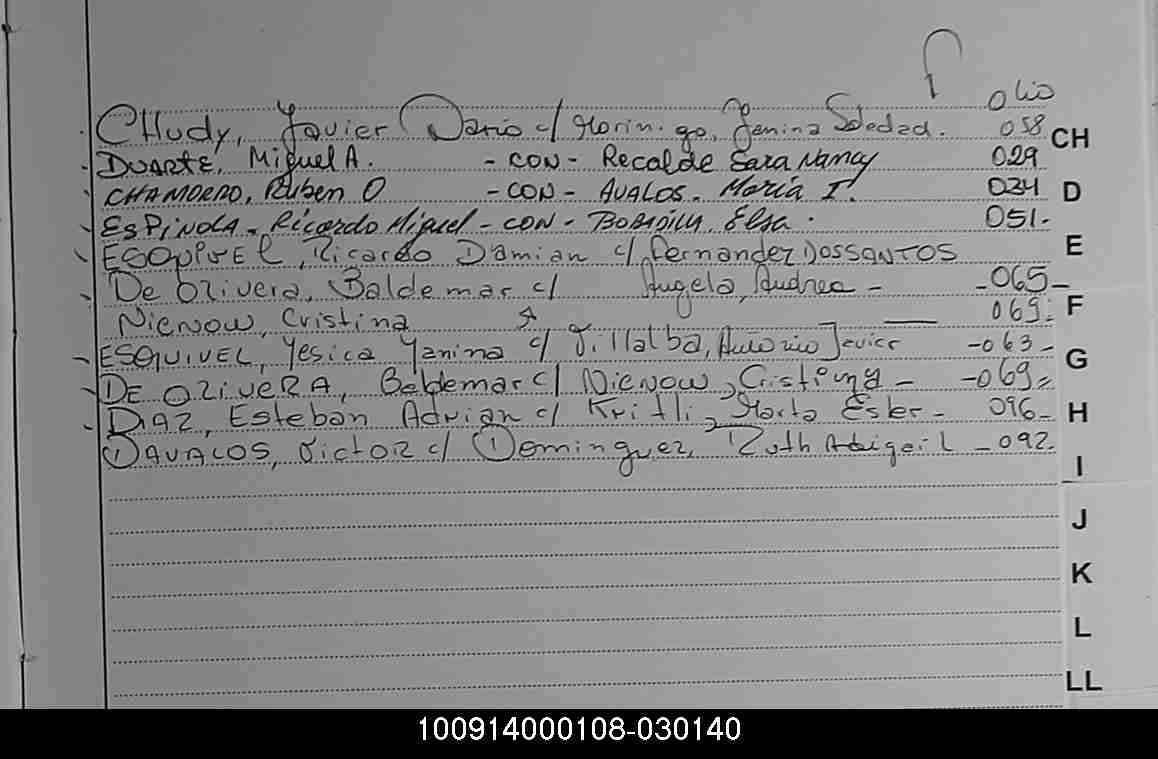 folio
CHudy, Javier Dario c/ Morinigo, Janina Soledad. 058
DUARTE, Miguel A. - CON - Recalde Sara Nancy 029
CHAMORRO, Ruben O - CON - AVALOS. Maria I. 034
ESPINOLA. Ricardo Miguel - CON - BOBADILLA. Elsa. 051.
ESQUIVEL, Ricardo Damian c/ Fernandez DOSSANTOS
De Olivera, Baldemar c/ Angela, Andrea - -065-
Niewow, Cristina 069.
ESQUIVEL, Yesica Yanina c/ Villalba, Antonio Javier -063-
DE OLIVERA, Baldemar c/ Niewow, Cristina - -069-
DIAZ, Esteban Adrian c/ Kritli, Marta Ester - 096-
DAVALOS, Victor c/ Dominguez, Ruth Abigail - 092-
CH
D
E
F
G
H
I
J
K
L
LL
100914000108-030140